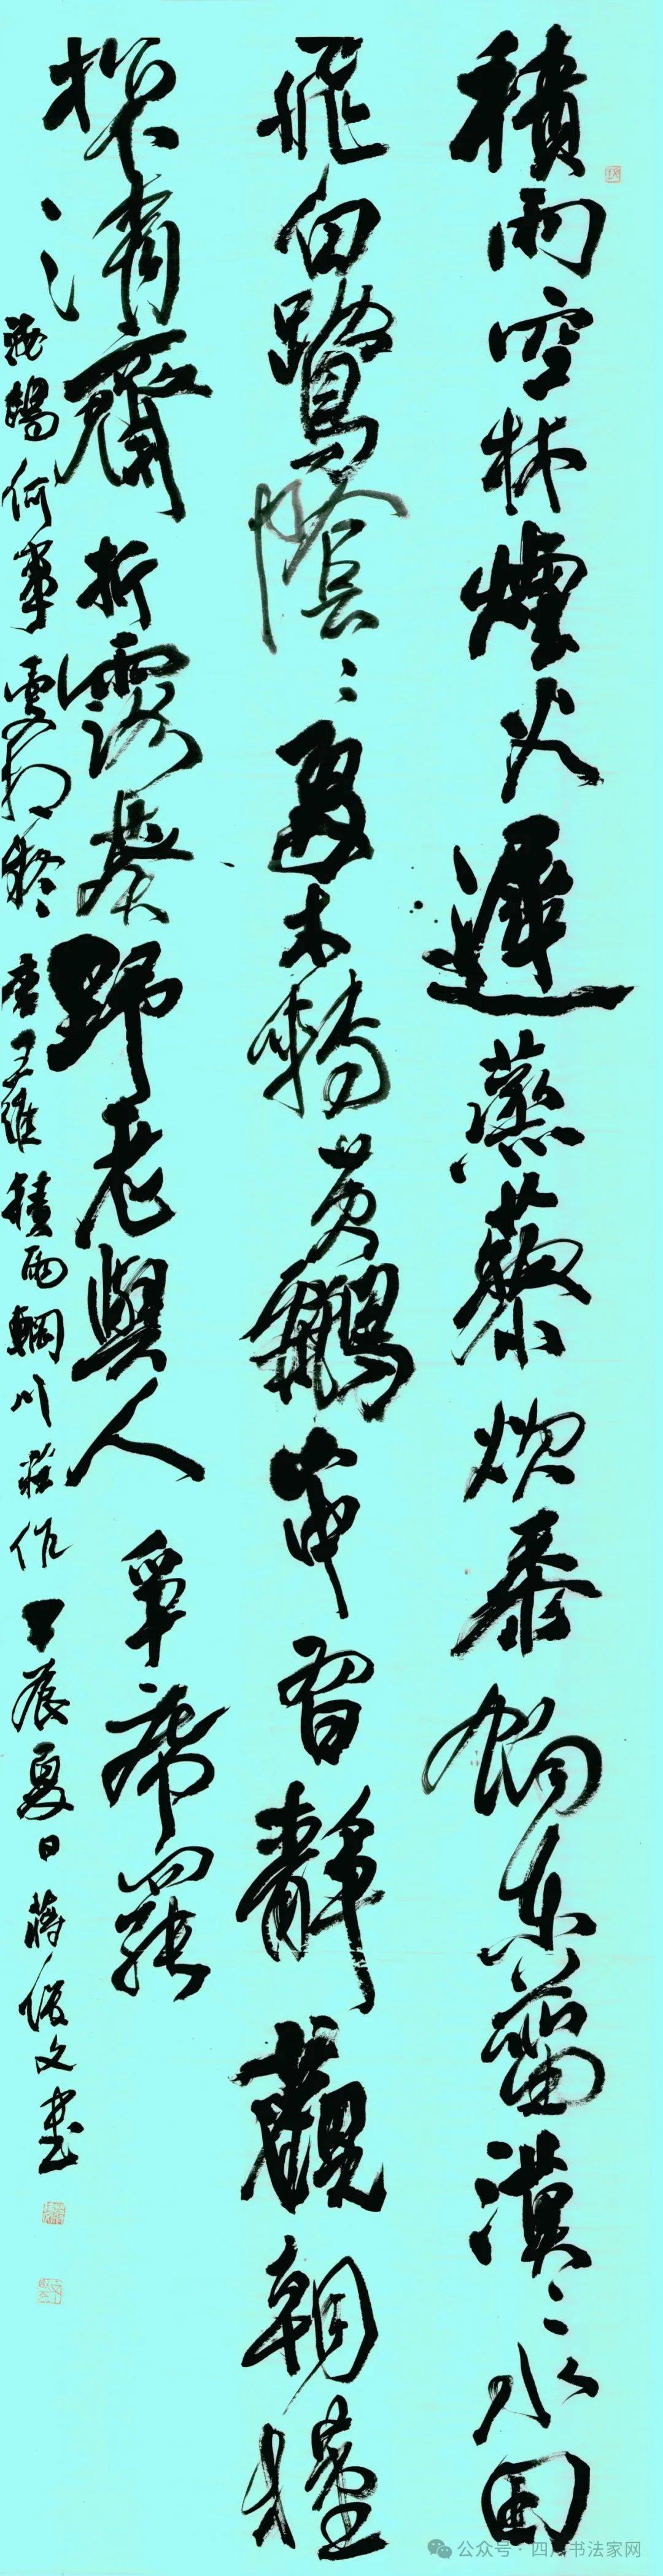 積雨空林煙火遲蒸藜炊黍餉東菑漠〻水田
飛白鷺陰〻夏木轉黃鸝山中習靜觀朝槿
松下清齋折露葵野老與人爭席罷
海鷗何事更相疑 唐王維積雨輞川莊作 甲辰夏日蔣俊文书
公众号·四川书法家网